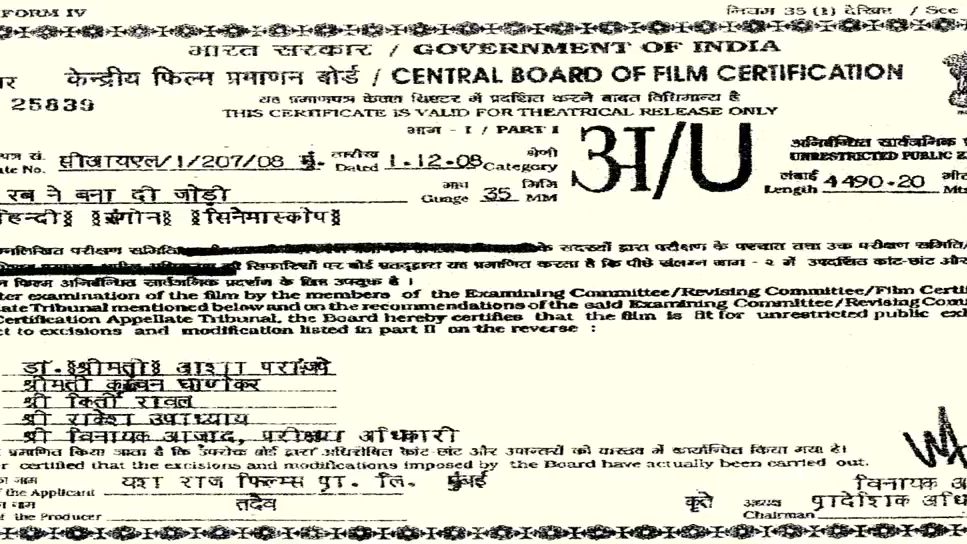 FORM IV नियम 35 (1) देखिए / See
भारत सरकार / GOVERNMENT OF INDIA
केन्द्रीय फिल्म प्रमाणन बोर्ड / CENTRAL BOARD OF FILM CERTIFICATION
25839
यह प्रमाणपत्र केवल थिएटर में प्रदर्शित करने बाबत विधिमान्य है
THIS CERTIFICATE IS VALID FOR THEATRICAL RELEASE ONLY
भाग - I / PART I
पत्र सं. सीआयएल/1/207/08 मुं. तारीख श्रेणी अ/U अनिर्बन्धित सार्वजनिक
No. Dated 1.12.08 Category UNRESTRICTED PUBLIC
रब ने बना दी जोड़ी माप 35 मिमि लंबाई 4490.20
Guage MM Length Mt
हिन्दी रंगीन सिनेमास्कोप
परीक्षण समिति के सदस्यों द्वारा परीक्षण के पश्चात तथा उक्त परीक्षण समिति/
सिफारिशों पर बोर्ड एतद्द्वारा यह प्रमाणित करता है कि पीछे संलग्न भाग - २ में उपदर्शित कांट-छांट और
फिल्म अनिर्बन्धित सार्वजनिक प्रदर्शन के लिए उपयुक्त है ।
ter examination of the film by the members of the Examining Committee/Revising Committee/Film Certi
ate Tribunal mentioned below and on the recommendations of the said Examining Committee/Revising Com
Certification Appellate Tribunal, the Board hereby certifies that the film is fit for unrestricted public ex
ct to excisions and modification listed in part II on the reverse :
डा. श्रीमती आशा परांजपे
श्रीमती कांचन घाणेकर
श्री किर्ती रावल
श्री राकेश उपाध्याय
श्री विनायक आजाद, परीक्षण अधिकारी
प्रमाणित किया जाता है कि उपरोक्त बोर्ड द्वारा अधिरोपित कांट-छांट और उपान्तरों को वास्तव में कार्यान्वित किया गया है।
r certified that the excisions and modifications imposed by the Board have actually been carried out.
का नाम यश राज फिल्म्स प्रा. लि. मुंबई विनायक
f the Applicant
का नाम तदैव कृते अध्यक्ष प्रादेशिक अधि
f the Producer Chairman